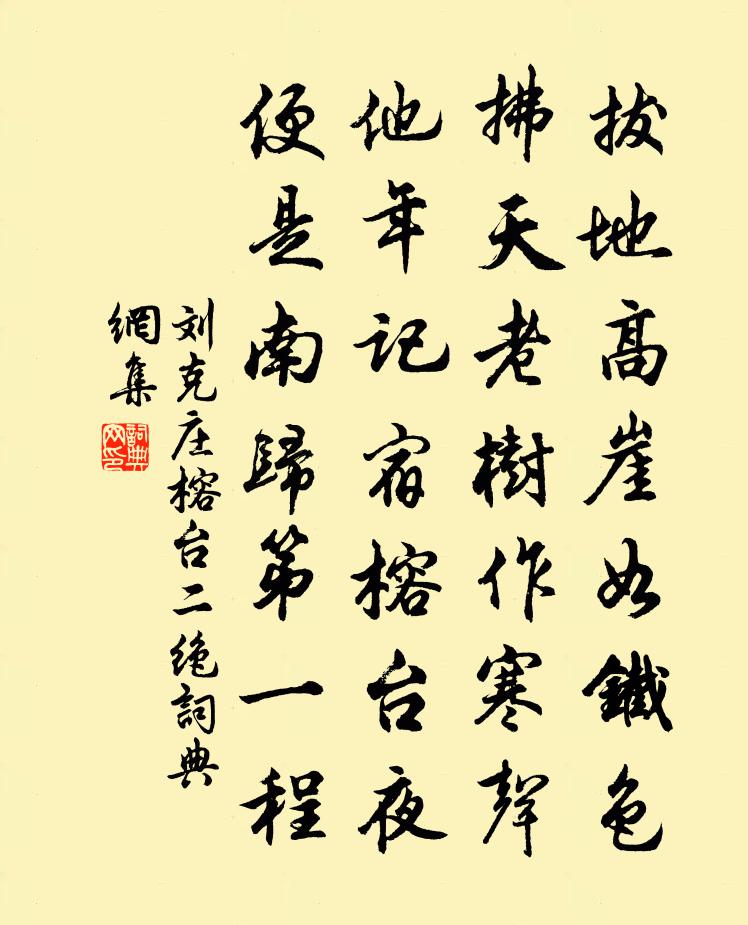 拔地高崖如鐵色
拂天老樹作寒聲
他年記宿榕台夜
便是南歸第一程
刘克庄榕台二絶詞典
網集
詞典
网印